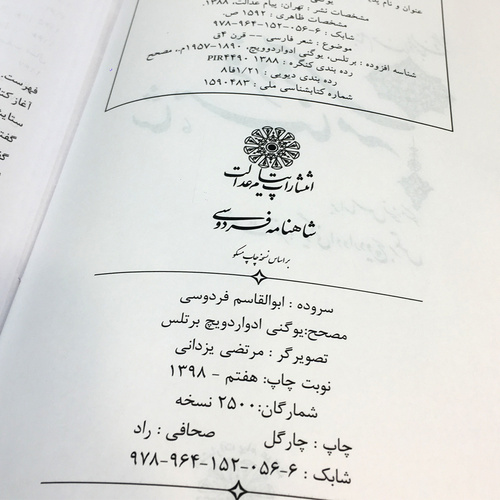 عنوان و نام پد
مشخصات نشر : تهران: پیام عدالت، ۱۳۸۸.
مشخصات ظاهری : ۱۵۹۲ ص.
شابک : ۶-۰۵۶-۱۵۲-۹۶۴-۹۷۸
موضوع : شعر فارسی -- قرن ۴ق
شناسه افزوده : برتلس، یوگنی ادواردوویچ، ۱۸۹۰-۱۹۵۷م.، مصحح
رده بندی کنگره : ۱۳۸۸ PIR۴۴۹۰
رده بندی دیویی : ۸فا۱/۲۱
شماره کتابشناسی ملی : ۱۵۹۰۴۸۳
فهرست
آغاز کتا
ستایش
گفت
گف
انتشارات پیام عدالت
شاهنامه فردوسی
بر اساس نسخه چاپ مسکو
سروده : ابوالقاسم فردوسی
مصحح:یوگنی ادواردویچ برتلس
تصویرگر : مرتضی یزدانی
نوبت چاپ: هفتم - ۱۳۹۸
شمارگان:۲۵۰۰ نسخه
چاپ : چارگل صحافی : راد
شابک : ۶-۰۵۶-۱۵۲-۹۶۴-۹۷۸